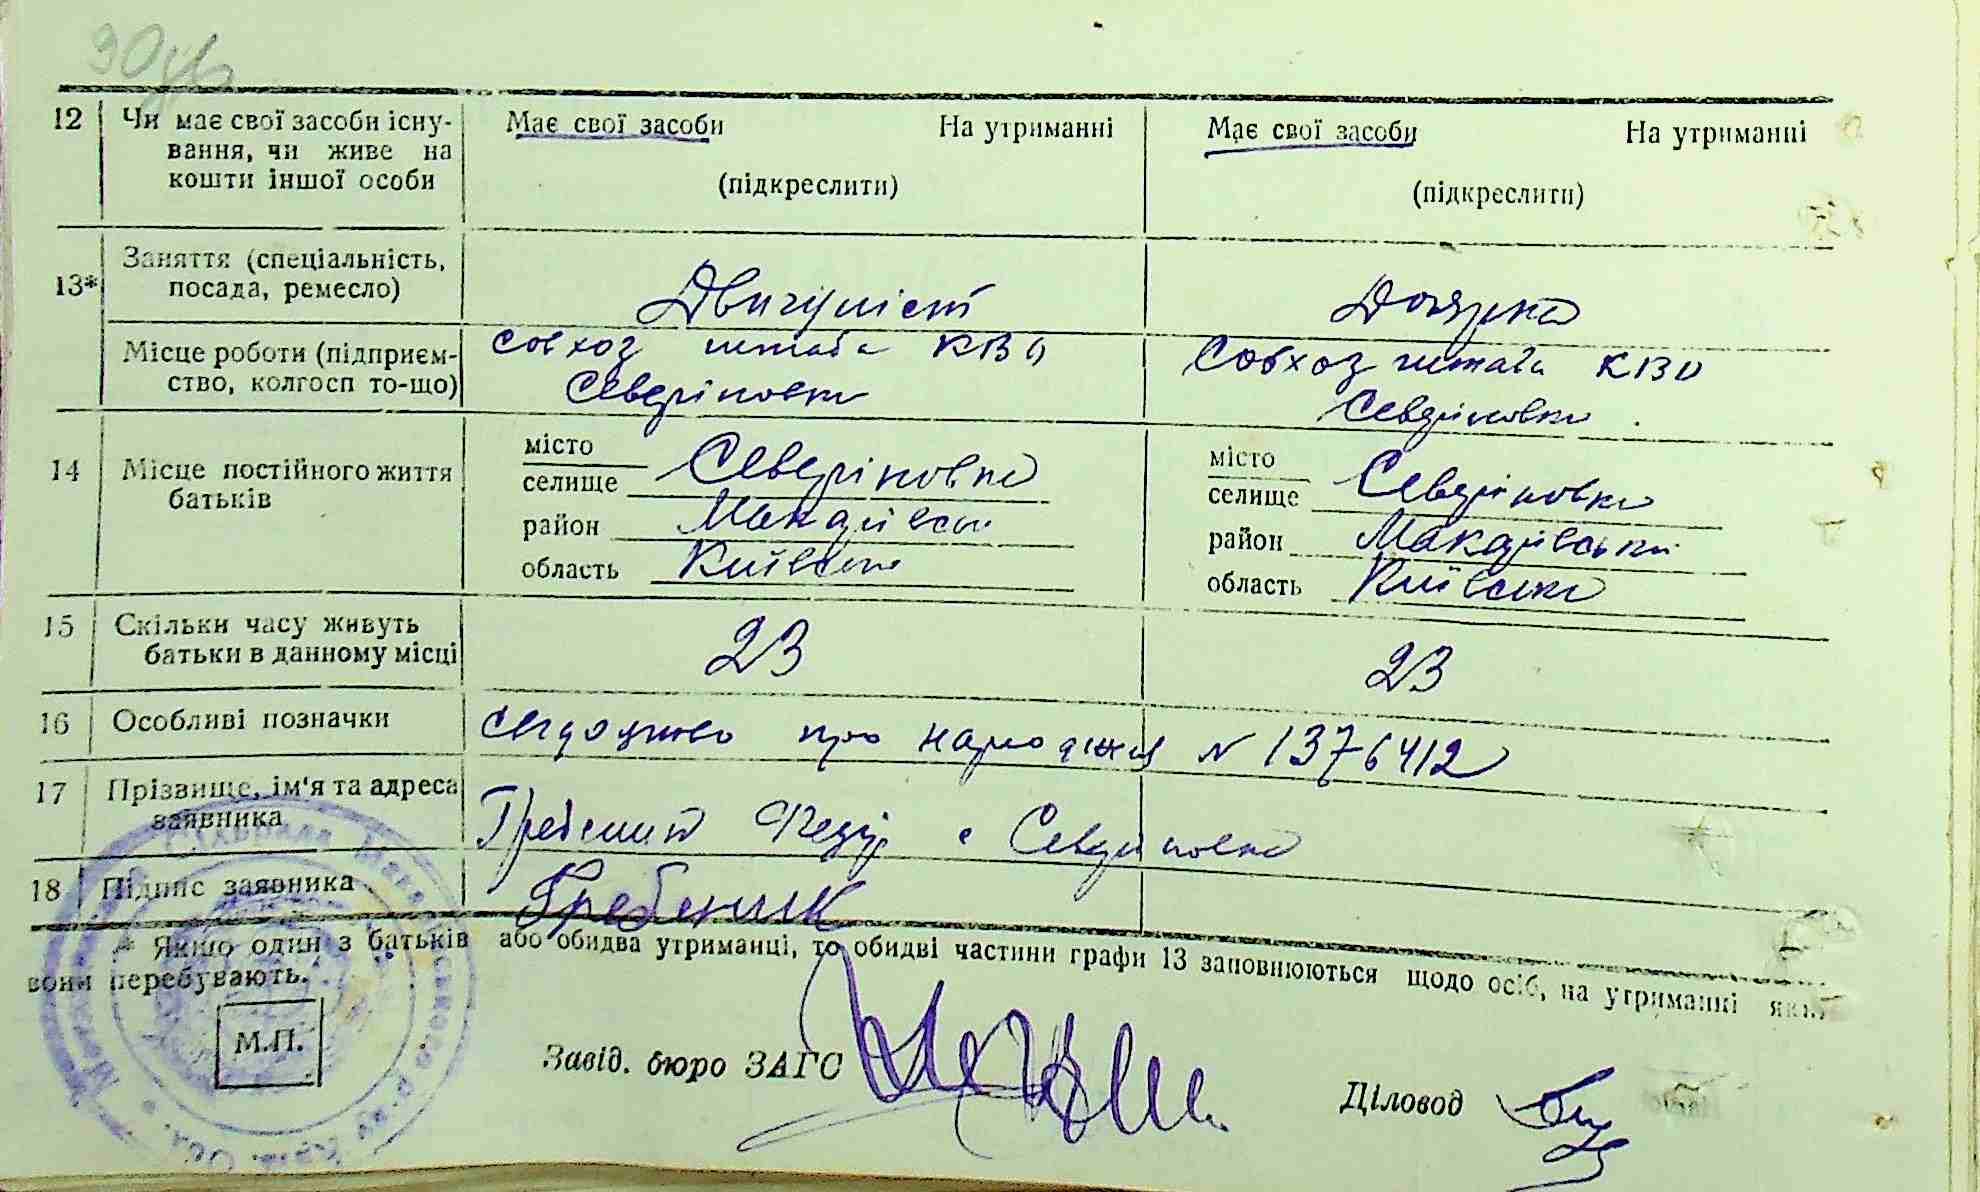 12 Чи має свої засоби існу-
вання, чи живе на
кошти іншої особи
Має свої засоби На утриманні
(підкреслити)
Має свої засоби На утриманні
(підкреслити)
13* Заняття (спеціальність,
посада, ремесло)
Двигуніст
Доярка
Місце роботи (підприєм-
ство, колгосп то-що)
Совхоз штаба КВО
Севериновка
Совхоз штаба КВО
Севериновка
14 Місце постійного життя
батьків
місто
селище Севериновка
район Макарівськ
область Київська
місто
селище Севериновка
район Макарівський
область Київська
15 Скільки часу живуть
батьки в данному місці
23
23
16 Особливі позначки
свідоцтво про народження N 1376412
17 Прізвище, ім'я та адреса
заявника
Гребеник Федір с Севериновка
18 Підпис заявника
Гребеник
* Якщо один з батьків або обидва утриманці, то обидві частини графи 13 заповнюються щодо осіб, на утриманні яких
вони перебувають.
М.П.
Завід. бюро ЗАГС
Діловод